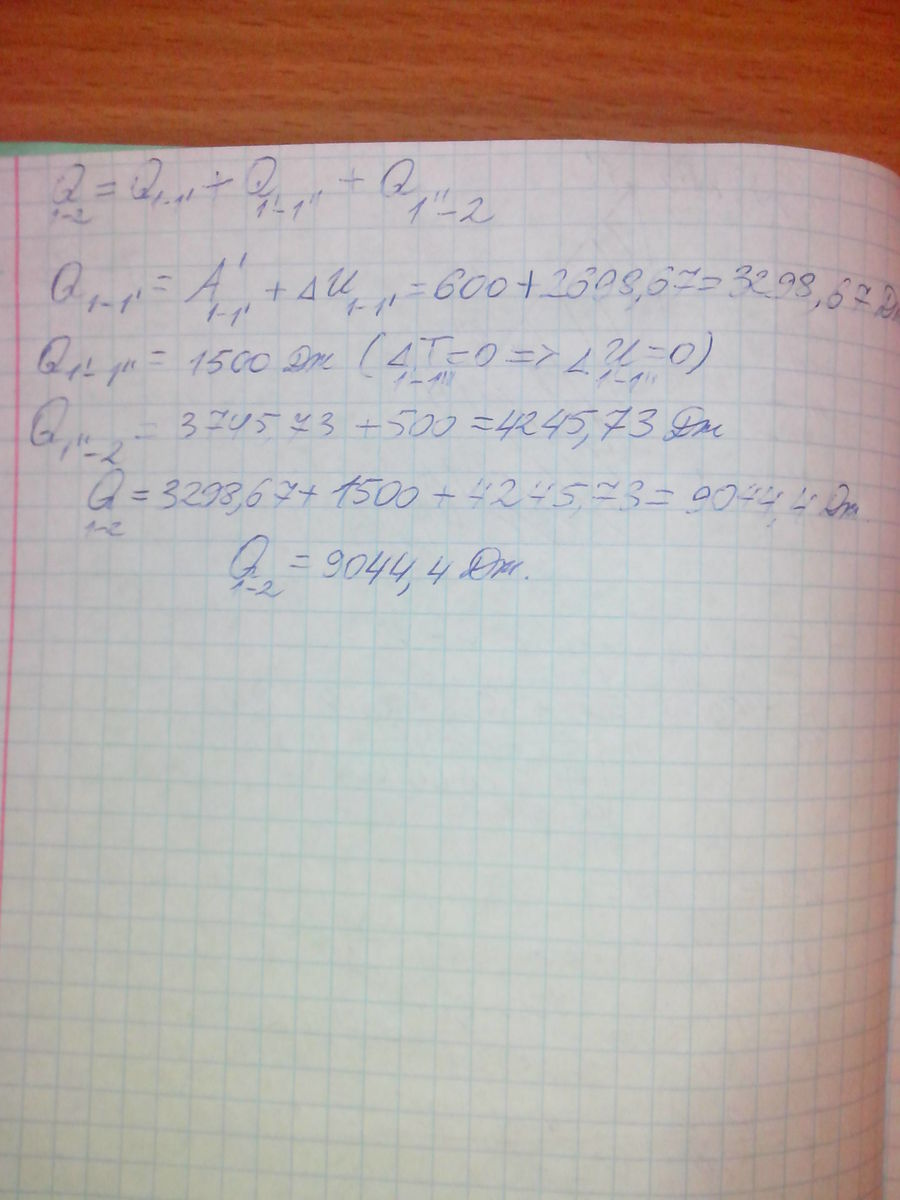 Q₁₋₂ = Q₁₋₁' + Q₁'₋₁'' + Q₁''₋₂
Q₁₋₁' = A'₁₋₁' + ΔU₁₋₁' = 600 + 2698,67 = 3298,67 Дж
Q₁'₋₁'' = 1500 Дж (ΔT₁'₋₁'' = 0 => ΔU₁'₋₁'' = 0)
Q₁''₋₂ = 3745,73 + 500 = 4245,73 Дж
Q₁₋₂ = 3298,67 + 1500 + 4245,73 = 9044,4 Дж.
Q₁₋₂ = 9044,4 Дж.